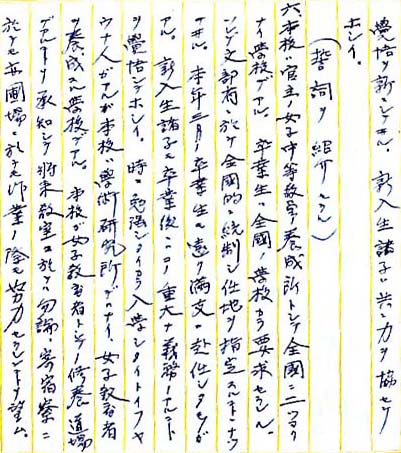 覺悟ヲ新ニシテヰル。新入生諸子ハ共ニ力ヲ協セテ
ホシイ。
(誓詞ヲ紹介セラル)
六、本校ハ官立ノ女子中等教員ノ養成所トシテ全國ニ二ツヨリ
ナイ學校デアル。卒業生ハ全國ノ學校カラ要求セラレ、
ソシテ文部省ニ於テ全國的ニ統制シ任地ヲ指定スルコトニナツ
テヰル。本年三月ノ卒業生モ遠ク滿支ニ赴任シタモノガ
アル。新入生諸子モ卒業後ハコノ重大ナ義務ノアルコト
ヲ覺悟シテホシイ。時ニ勉強シタイカラ入學シタイトイフヤ
ウナ人ガアルガ本校ハ學術研究所デハナイ、女子教育者
ヲ養成スル學校デアル。本校ガ女子教育者トシテノ修養道場
デアルコトヲ承知シテ將來教室ニ於テハ勿論、寄宿寮ニ
於テモ亦圃場ニ於テモ作業ノ際モ努力センコトヲ望ム。